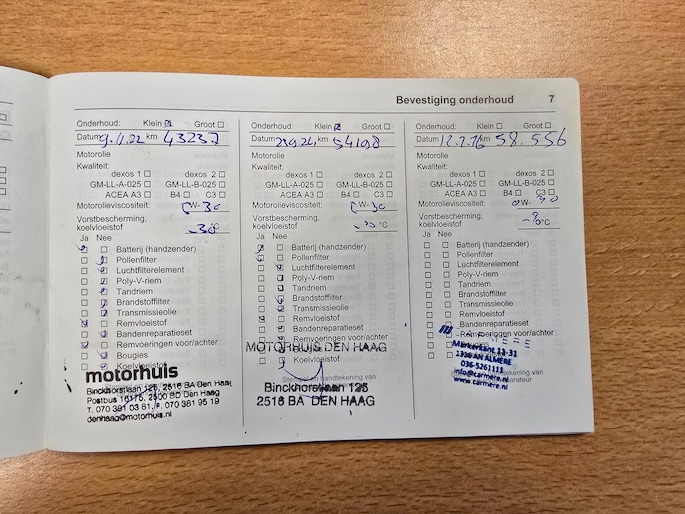 Bevestiging onderhoud 7
Onderhoud: Klein Groot
Datum 9.11.22 km 43237
Motorolie
Kwaliteit:
dexos 1 dexos 2
GM-LL-A-025 GM-LL-B-025
ACEA A3 B4 C3
Motorolieviscositeit: 0W-30
Vorstbescherming,
koelvloeistof -30°C
Ja Nee
Batterij (handzender)
Pollenfilter
Luchtfilterelement
Poly-V-riem
Tandriem
Brandstoffilter
Transmissieolie
Remvloeistof
Bandenreparatieset
Remvoeringen voor/achter
Bougies
Koelvloeistof
motorhuis
Binckhorstlaan 125, 2516 BA Den Haag
Postbus 16175, 2500 BD Den Haag
T. 070 381 03 81, F. 070 381 95 19
denhaag@motorhuis.nl
Onderhoud: Klein Groot
Datum km 54198
Motorolie
Kwaliteit:
dexos 1 dexos 2
GM-LL-A-025 GM-LL-B-025
ACEA A3 B4 C3
Motorolieviscositeit: 0W-30
Vorstbescherming,
koelvloeistof °C
Ja Nee
Batterij (handzender)
Pollenfilter
Luchtfilterelement
Poly-V-riem
Tandriem
Brandstoffilter
Transmissieolie
Remvloeistof
Bandenreparatieset
Remvoeringen voor/achter
MOTORHUIS DEN HAAG
Koelvloeistof
Binckhorstlaan 125
2516 BA DEN HAAG
Onderhoud: Klein Groot
Datum km 58.556
Motorolie
Kwaliteit:
dexos 1 dexos 2
GM-LL-A-025 GM-LL-B-025
ACEA A3 B4 C3
Motorolieviscositeit: 0W-30
Vorstbescherming,
koelvloeistof °C
Ja Nee
Batterij (handzender)
Pollenfilter
Luchtfilterelement
Poly-V-riem
Tandriem
Brandstoffilter
Transmissieolie
Remvloeistof
Bandenreparatieset
Remvoeringen voor/achter
Markerkant 11-31
ALMERE
036-5261111
info@carmere.nl
www.carmere.nl